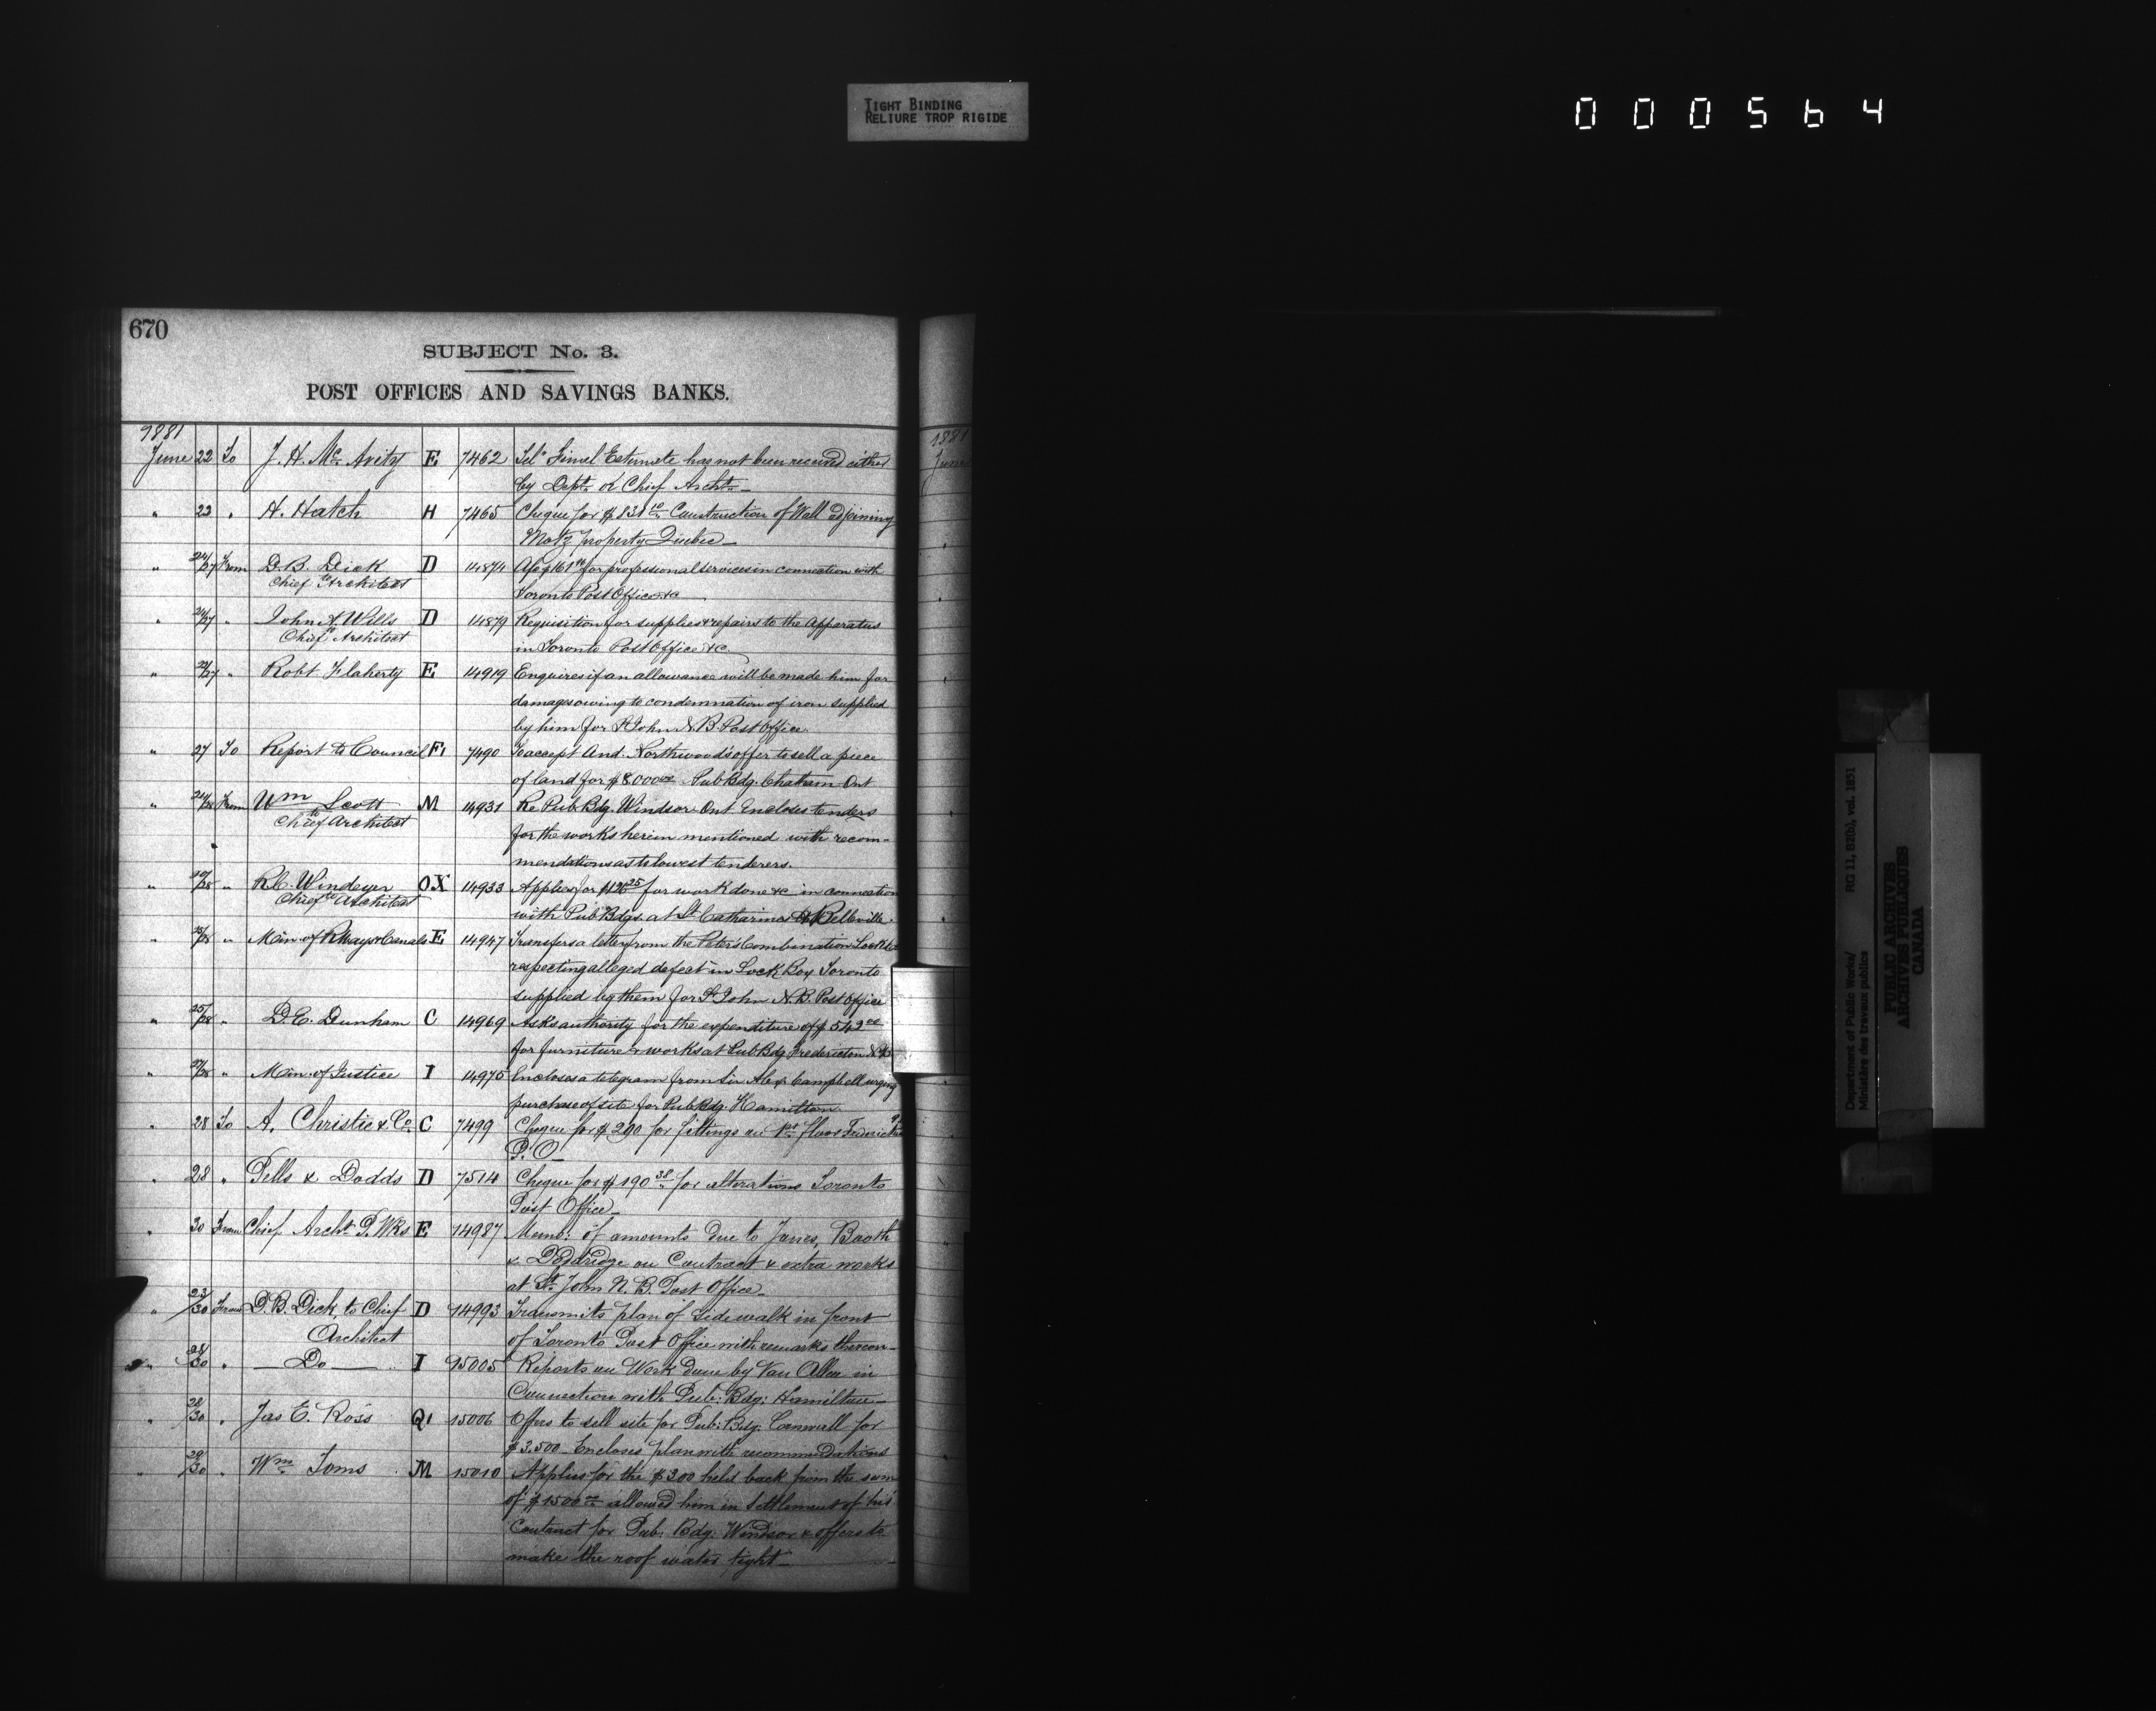 TIGHT BINDING
RELIURE TROP RIGIDE
000564
670
SUBJECT No. 3.
POST OFFICES AND SAVINGS BANKS.
1881
June 22 To J. H. McAvity E 7462 Tel. Final Estimate has not been received either
by Dept. or Chief Archt.
" 23 " H. Hatch H 7465 Cheque for $831 Construction of Wall adjoining
Motz property Quebec
" 24/27 From D. B. Dick D 14874 for professional services in connection with
Chief Architect
Toronto Post Office &c
" 24/27 " John A. Wills D 14879 Requisition for supplies & repairs to the apparatus
Chief Architect
in Toronto Post Office &c.
" 22/27 " Robt Flaherty E 14919 Enquires if an allowance will be made him for
damages owing to condemnation of iron supplied
by him for St John N.B. Post Office.
" 27 To Report to Council F1 7490 To accept And. Northwood's offer to sell a piece
of land for $8,000.00 Pub Bdg. Chatham Ont
" 24/28 From Wm Scott M 14931 Re Pub Bdg Windsor Ont Encloses tenders
to Chief Architect
for the works herein mentioned with recom-
mendations as to lowest tenderers.
" 27/28 " R. C. Windeyer OX 14933 Applies for $126.25 for work done &c in connection
to Chief Architect
with Pub Bdgs. at St Catharines & Belleville.
" 25/28 " Min. of Rways & Canals E 14947 Transfers a letter from the Peters Combination Lock Co
respecting alleged defect in Lock Box Toronto
supplied by them for St John N.B. Post Office
" 25/28 " D. E. Dunham C 14969 Asks authority for the expenditure of $542.00
for furniture & works at Pub Bdg Fredericton N.B.
" 27/28 " Min. of Justice I 14975 Encloses a telegram from Sir Alex. Campbell urging
purchase of site for Pub Bdg. Hamilton.
" 28 To A. Christie & Co. C 7499 Cheque for $290 for fittings on 1st floor Fredericton
P.O.
" 28 " Pells & Dodds D 7514 Cheque for $190.38 for alterations Toronto
Post Office
" 30 From Chief Archt. P. Wks E 14987 Memo: of amounts due to Jones, Booth
& Doddridge on Contract & extra works
at St. John N.B. Post Office
" 23/30 From D. B. Dick, to Chief D 14993 Transmits plan of sidewalk in front
Architect
of Toronto Post Office with remarks thereon
" 28/30 " Do I 15005 Reports on Work done by Van Allen in
Connection with Pub: Bdg: Hamilton
" 28/30 " Jas E. Ross Q1 15006 Offers to sell site for Pub: Bdg. Cornwall for
$3,500. Encloses plan with recommendations
" 29/30 " Wm Toms M 15010 Applies for the $300 held back from the sum
of $1500.00 allowed him in Settlement of his
Contract for Pub: Bdg: Windsor & offers to
make the roof water tight
1881
June
Department of Public Works/
Ministère des travaux publics
RG 11, B2(b), vol. 1851
PUBLIC ARCHIVES
ARCHIVES PUBLIQUES
CANADA